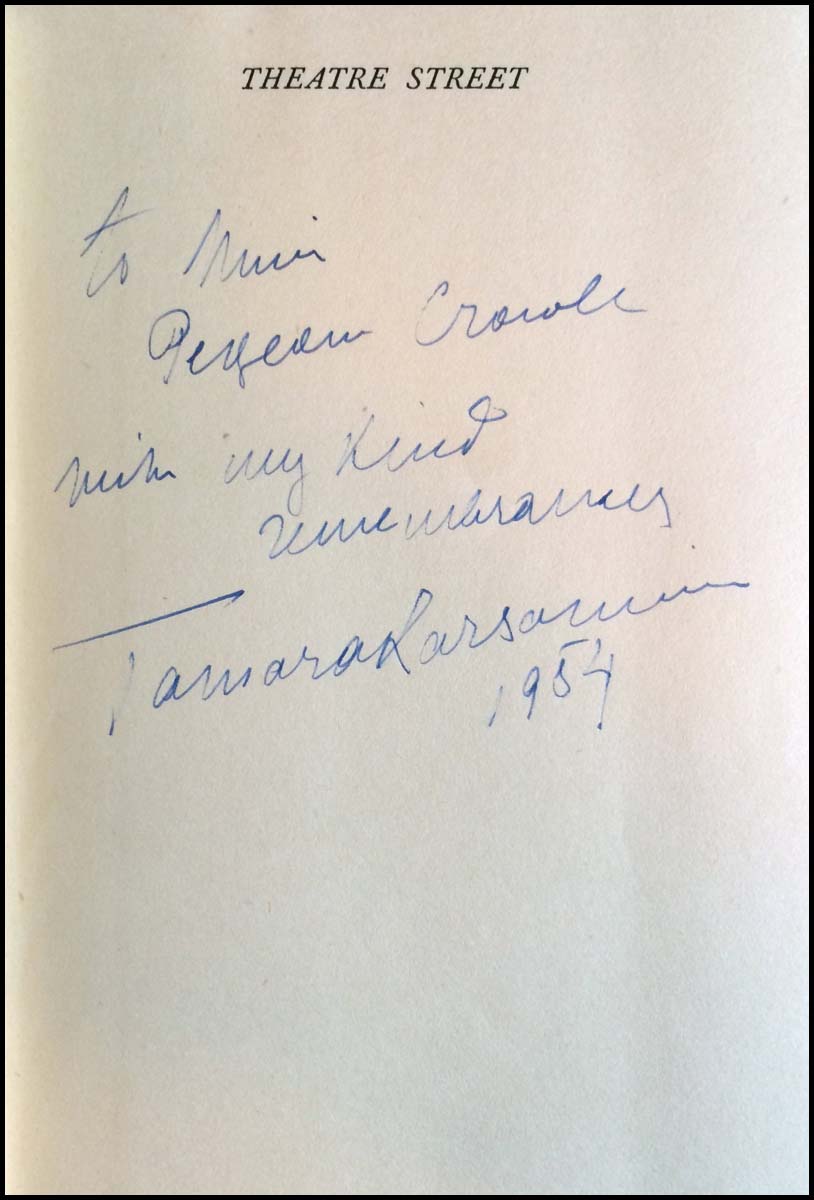 THEATRE STREET
to Miss
Pegeom Crowle
with my kind
remembrances
Tamara Karsavina
1954